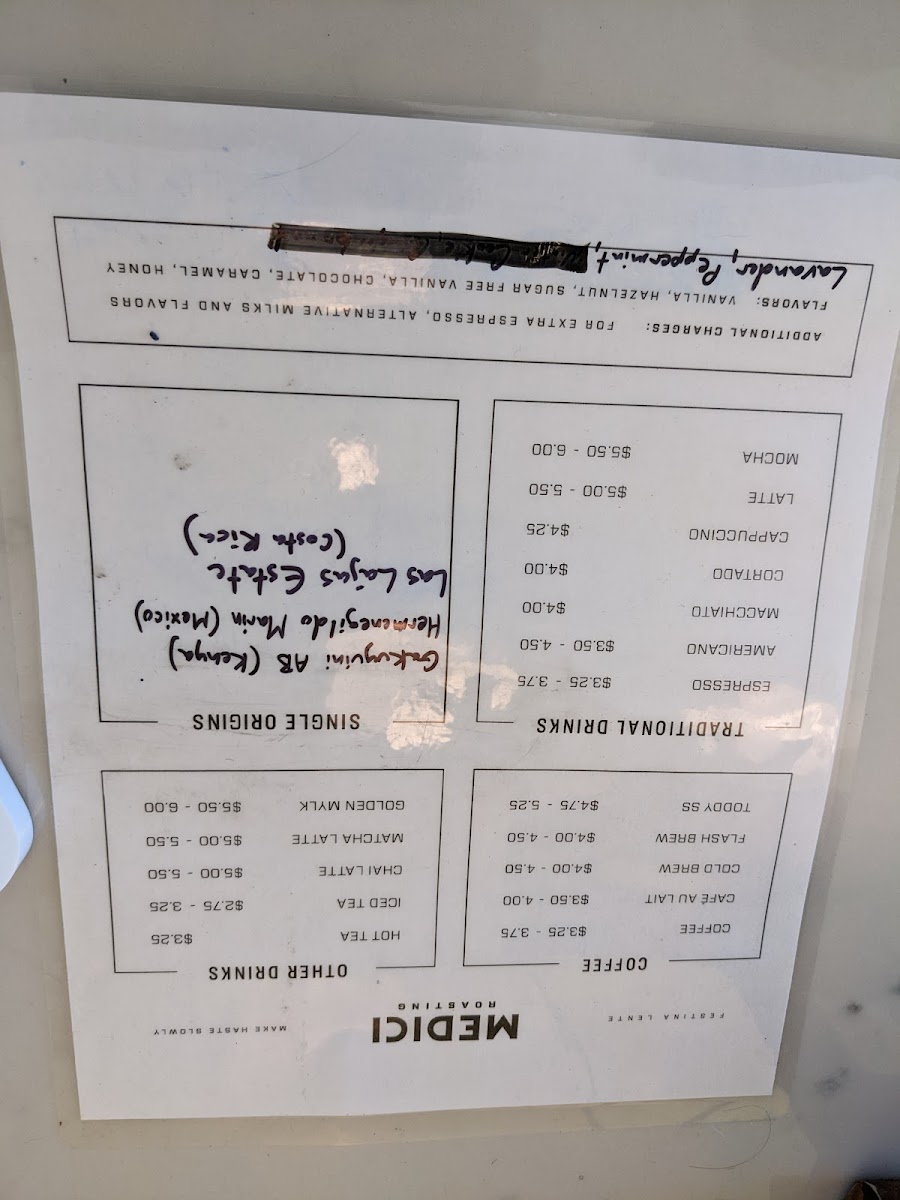 FESTINA LENTE
MEDICI
ROASTING
MAKE HASTE SLOWLY
COFFEE
COFFEE $3.25 - 3.75
CAFÉ AU LAIT $3.50 - 4.00
COLD BREW $4.00 - 4.50
FLASH BREW $4.00 - 4.50
TODDY SS $4.75 - 5.25
OTHER DRINKS
HOT TEA $3.25
ICED TEA $2.75 - 3.25
CHAI LATTE $5.00 - 5.50
MATCHA LATTE $5.00 - 5.50
GOLDEN MYLK $5.50 - 6.00
TRADITIONAL DRINKS
ESPRESSO $3.25 - 3.75
AMERICANO $3.50 - 4.50
MACCHIATO $4.00
CORTADO $4.00
CAPPUCCINO $4.25
LATTE $5.00 - 5.50
MOCHA $5.50 - 6.00
SINGLE ORIGINS
AB (Kenya)
Hermenegildo Marin (Mexico)
Las Lajas Estate
(Costa Rica)
ADDITIONAL CHARGES: FOR EXTRA ESPRESSO, ALTERNATIVE MILKS AND FLAVORS
FLAVORS: VANILLA, HAZELNUT, SUGAR FREE VANILLA, CHOCOLATE, CARAMEL, HONEY
Lavander, Peppermint,